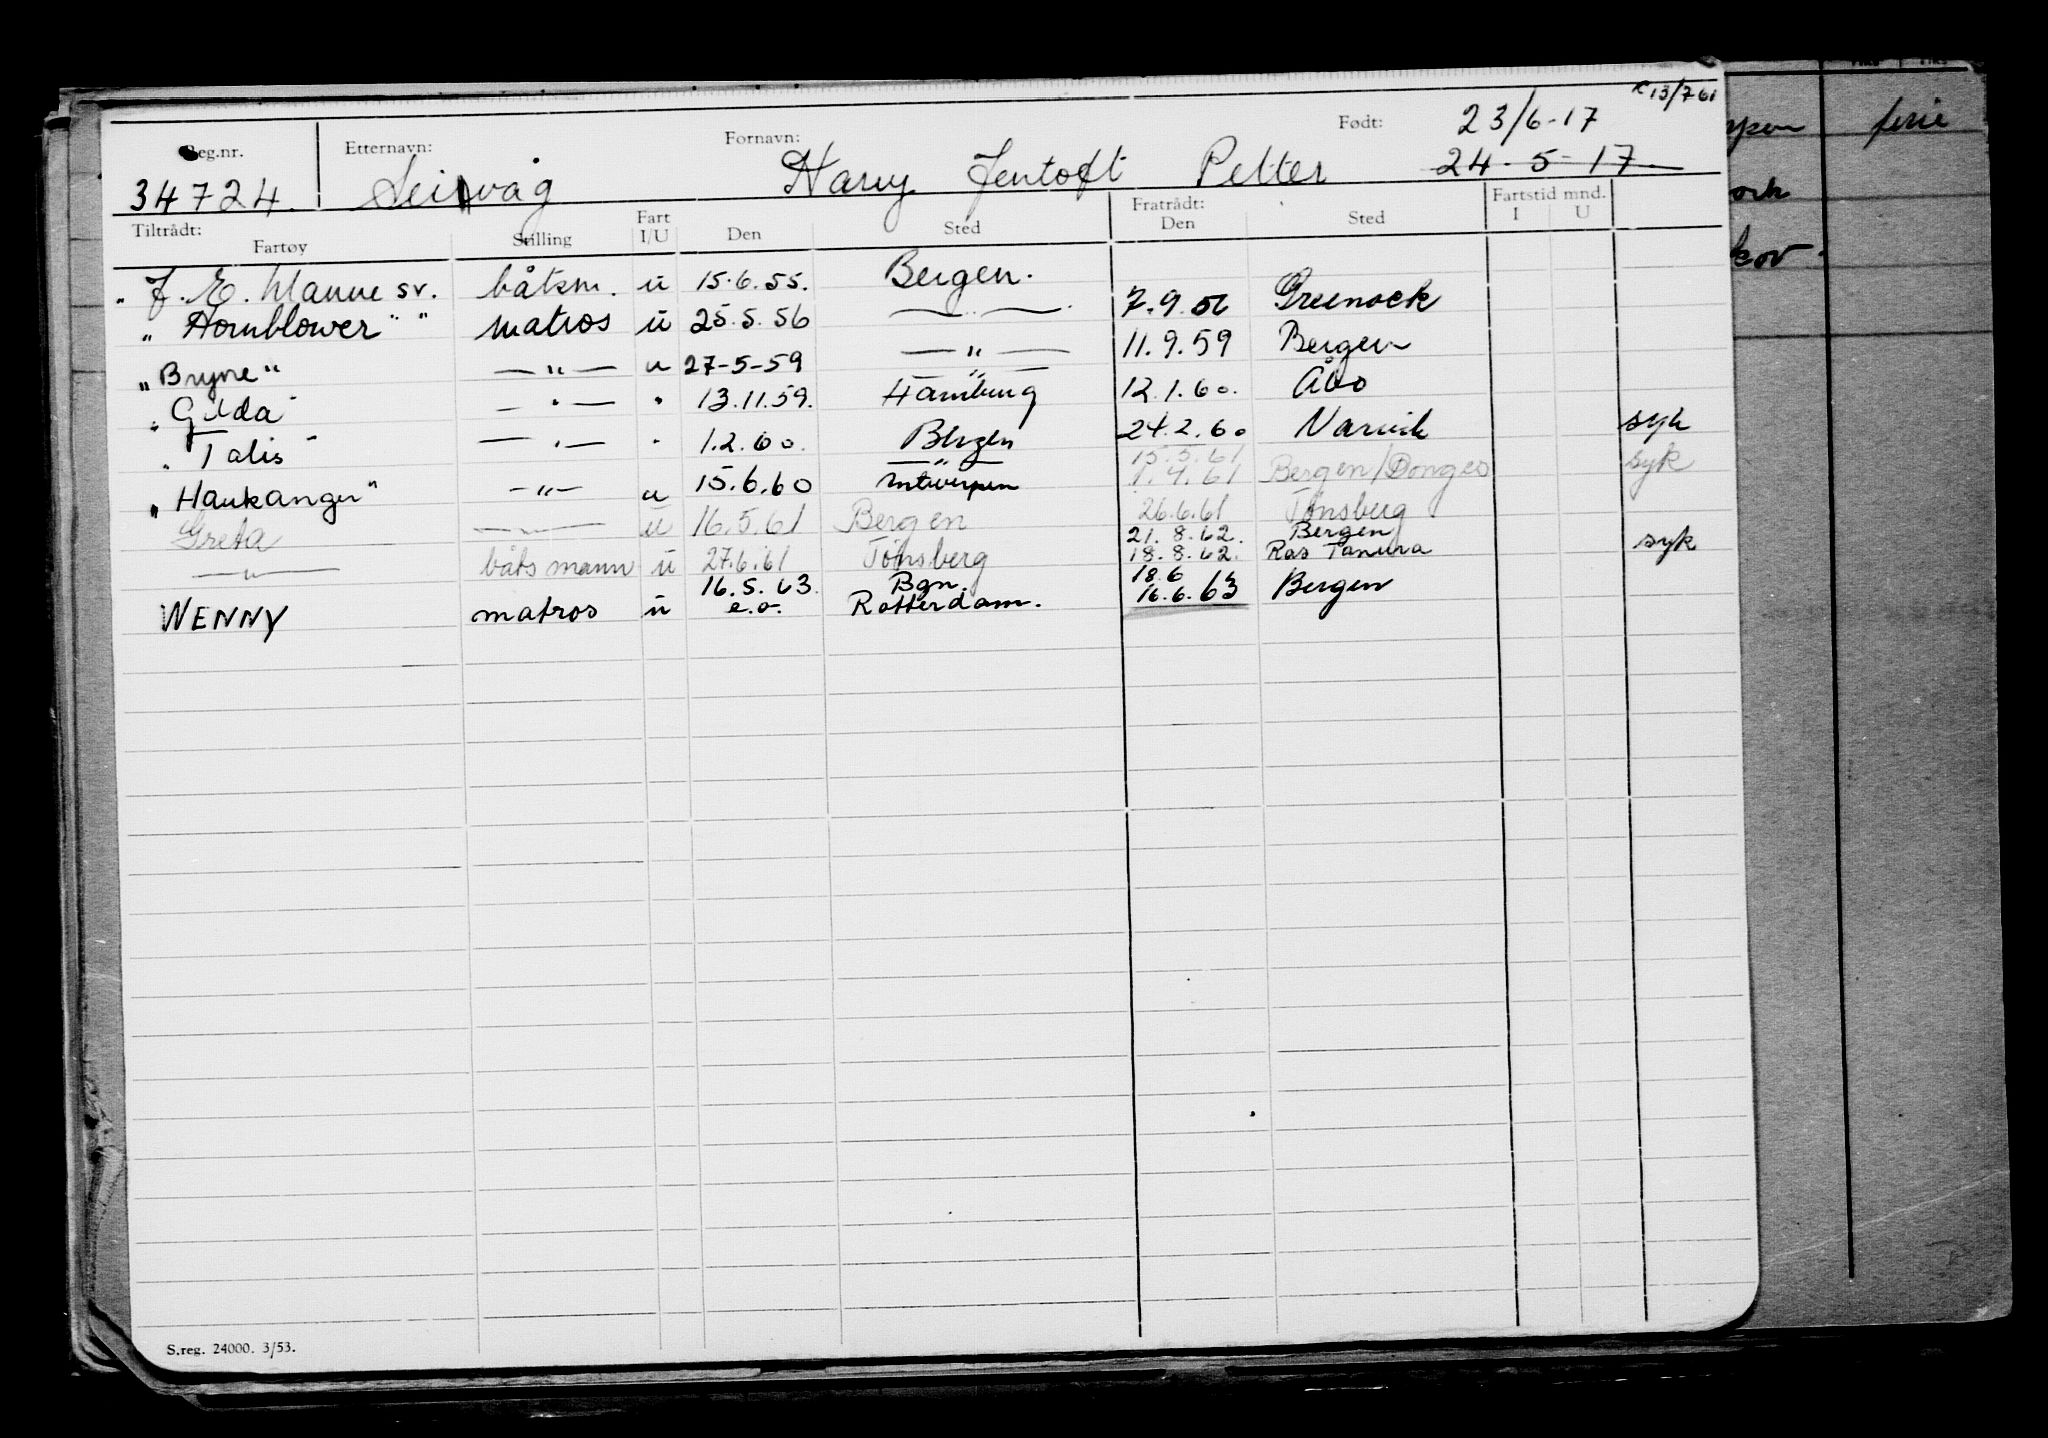 R 13/7 61
Reg.nr. Etternavn: Fornavn: Født: 23/6-17
34724. Seivåg Harry Jentoft Petter 24-5-17
Tiltrådt: Fratrådt: Fartstid mnd.
Fartøy Stilling Fart I/U Den Sted Den Sted I U
" J. E. Manne sv. båtsm. u 15.6.55. Bergen.
" Hornblower " " matros u 25.5.56 — " — 7.9.56 Greenock
" Bryne " — " — u 27-5-59 — " — 11.9.59 Bergen
" Gilda " — " — " 13.11.59. Hamburg 12.1.60. Åbo
" Talis " — " — " 1.2.60. Bergen 24.2.60 Narvik syk
" Haukanger " — " — u 15.6.60 — " — Antwerpen 15.5.61 1.4.61 Bergen/Donges syk
Greta — " — u 16.5.61 Bergen 26.6.61 Tønsberg
— " — båtsmann u 27.6.61 Tønsberg 21.8.62. Bergen 18.8.62. Ras Tanura syk
WENNY matros u 16.5.63. e.o. Bgn. Rotterdam. 18.6 16.6.63 Bergen
S.reg. 24000. 3/53.
ferie